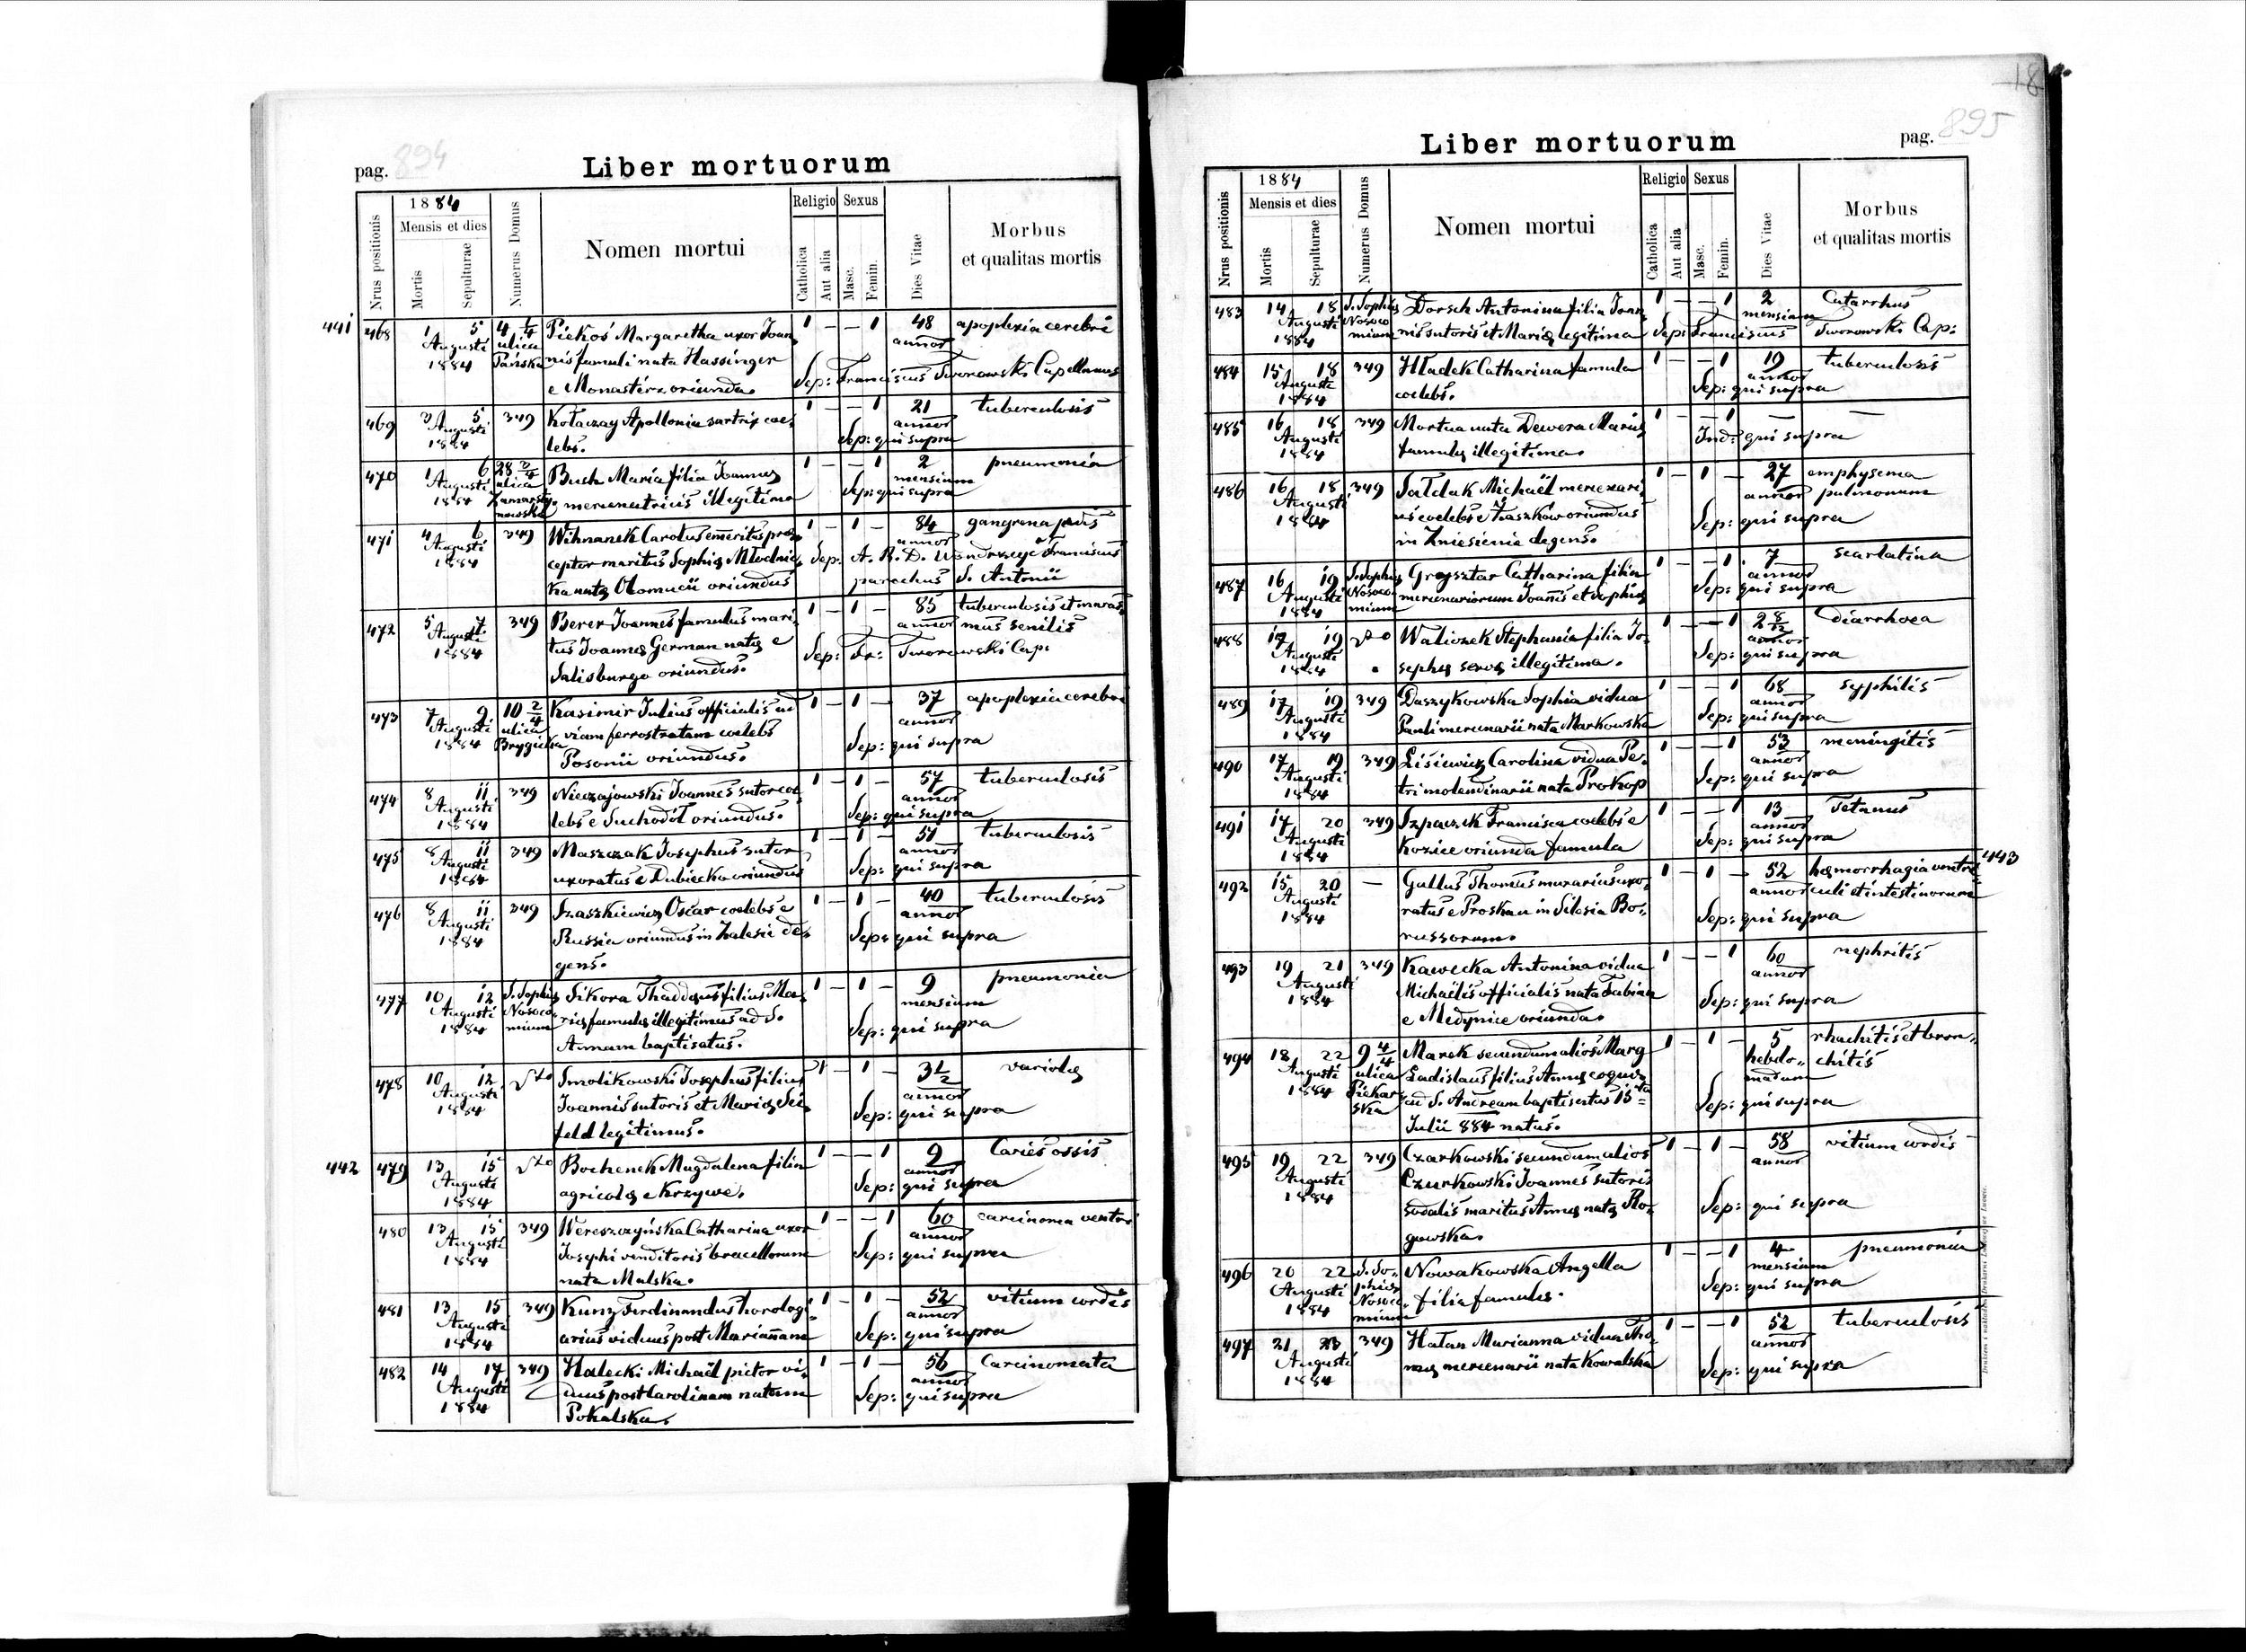 pag. 894
Liber mortuorum
Nrus positionis
1884
Mensis et dies
Mortis
Sepulturae
Numerus Domus
Nomen mortui
Religio
Catholica
Aut alia
Sexus
Masc.
Femin.
Dies Vitae
Morbus
et qualitas mortis
441
468 1 5 4 1/4 Piekoś Margaretha uxor Joan 1 — — 1 48 apoplexia cerebri
Augusti ulica nis famuli nata Hassinger annor
1884 Pańska e Monasterz oriunda. Sep: Franciscus Tworowski Capellanus
469 3 5 349 Kołaczay Apollonia sartrix cae, 1 — — 1 21 tuberculosis
Augusti lebs. annor
1884 Sep: qui supra
470 1 6 28 2/4 Bush Maria filia Joannæ 1 — — 1 2 pneumonia
Augusti ulica mercenatricis illegitima mensium
1884 Sep: qui supra
471 4 6 349 Wihnanek Carolus emeritus præ, 1 — 1 — 84 gangrena pedis
Augusti ceptor maritus Sophiæ Młodnic, annor
1884 Sep: A. R. D. Franciscus
ka natæ Olomucii oriundus parochus S. Antonii
472 5 7 349 Berer Joannes famulus mari, 1 — 1 — 85 tuberculosis et maras,
Augusti tus Joannæ German natæ e annor mus senilis
1884 Salisburgo oriundus. Sep: Fr: Tworowski Cap:
473 7 9 10 2/4 Kasimir Julius officialis ad 1 — 1 — 37 apoplexia cerebri
Augusti ulica viam ferrostratam coelebs annor
1884 Posonii oriundus. Sep: qui supra
474 8 11 349 Nieczajowski Joannes sutor coe, 1 — 1 — 57 tuberculosis
Augusti lebs e Suchodół oriundus. annor
1884 Sep: qui supra
475 8 11 349 Maszczak Josephus sutor 1 — 1 — 51 tuberculosis
Augusti uxoratus e Dubiecko oriundus annor
1884 Sep: qui supra
476 8 11 349 Szaszkiewicz Oscar coelebs e 1 — 1 — 40 tuberculosis
Augusti Russia oriundus in Zalesie de, annor
1884 gens. Sep: qui supra
477 10 12 S. Sophiæ Sikora Thaddæus filius Ma, 1 — 1 — 9 pneumonia
Augusti Nosoco, riæ famulæ illegitimus ad S. mensium
1884 mium Annam baptisatus. Sep: qui supra
478 10 12 Smolikowski Josephus filius 1 — 1 — 3 1/2 variolæ
Augusti Joannis sutoris et Mariæ Sei, annor
1884 feld legitimus. Sep: qui supra
442
479 13 15 Bochenek Magdalena filia 1 — — 1 9 Caries ossis
Augusti agricolæ e Krzywe. annor
1884 Sep: qui supra
480 13 15 349 Wereszczyńska Catharina uxor 1 — — 1 60 carcinoma ventri
Augusti Josephi venditoris bracellorum annor
1884 nata Malska. Sep: qui supra
481 13 15 349 Kunz Ferdinandus horologi, 1 — 1 — 52 vitium cordis
Augusti arius viduus post Mariannam annor
1884 Sep: qui supra
482 14 17 349 Halecki Michaël pictor vi, 1 — 1 — 56 Carcinomata
Augusti duus post Carolinam natam annor
1884 Pokalska. Sep: qui supra
18
Liber mortuorum
pag. 895
Nrus positionis
1884
Mensis et dies
Mortis
Sepulturae
Numerus Domus
Nomen mortui
Religio
Catholica
Aut alia
Sexus
Masc.
Femin.
Dies Vitae
Morbus
et qualitas mortis
483 14 18 S. Sophiæ Dorsch Antonina filia Joan, 1 — — 1 2 Catarrhus
Augusti Nosoco nis sutoris et Mariæ legitima mensium
1884 mium Sep: Franciscus Tworowski Cap:
484 15 18 349 Hładek Catharina famula 1 — — 1 19 tuberculosis
Augusti coelebs. annor
1884 Sep: qui supra
485 16 18 349 Mortua nata Dewera Mariæ 1 — — 1 — —
Augusti famulæ illegitima. Ind: qui supra
1884
486 16 18 349 Sałdak Michaël mercenari, 1 — 1 — 27 emphysema
Augusti us coelebs e Żaszków oriundus annor pulmonum
1884 in Zniesienie degens. Sep: qui supra
487 16 19 S. Sophiæ Gregsztar Catharina filia 1 — — 1 7 scarlatina
Augusti Nosoco mercenariorum Joannis et Sophiæ annor
1884 mium Sep: qui supra
488 17 19 Waliczek Stephania filia Jo, 1 — — 1 2 8/12 diarrhoea
Augusti sephæ servæ illegitima. annor
1884 Sep: qui supra
489 17 19 349 Daszykowska Sophia vidua 1 — — 1 68 syphilis
Augusti Pauli mercenarii nata Markowska annor
1884 Sep: qui supra
490 17 19 349 Lisiewicz Carolina vidua Pe, 1 — — 1 53 meningitis
Augusti tri molendinarii nata Prokop annor
1884 Sep: qui supra
491 17 20 349 Szpaczek Francisca coelebs e 1 — — 1 13 Tetanus
Augusti Kozice oriunda famula annor
1884 Sep: qui supra
443
492 15 20 — Gallus Thomas murarius uxo, 1 — 1 — 52 hæmorrhagia ventri,
Augusti ratus e Proskau in Silesia Bo, annor culi et intestinorum
1884 russorum. Sep: qui supra
493 19 21 349 Kawecka Antonina vidua 1 — — 1 60 nephritis
Augusti Michaëlis officialis nata Fabian annor
1884 e Medynice oriunda. Sep: qui supra
494 18 22 9 4/4 Marek secundum alios Marg 1 — 1 — 5 rhachitis et bron,
Augusti ulica Ladislaus filius Annæ coquæ hebdo, chitis
1884 Piekar ad S. Andream baptisatus 15 madum
ska Julii 884 natus. Sep: qui supra
495 19 22 349 Czarkowski secundum alios 1 — 1 — 58 vitium cordis
Augusti Czurkowski Joannes sutoris annor
1884 sodalis maritus Annæ natæ Ro, Sep: qui supra
gowska.
496 20 22 S. So, Nowakowska Angella 1 — — 1 4 pneumonia
Augusti phiæ filia famulæ. mensium
1884 Nosoco, Sep: qui supra
mium
497 21 23 349 Hatan Marianna vidua Tho 1 — — 1 52 tuberculosis
Augusti mæ mercenarii nata Kowalska annor
1884 Sep: qui supra